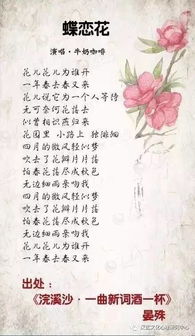 蝶恋花
演唱·牛奶咖啡
花儿花儿为谁开
一年春去春又来
花儿说它为一个人等待
无可奈何花落去
似曾相识燕归来
花园里 小路上 独徘徊
四月的微风轻似梦
吹去了花瓣片片落
怕春花落尽成秋色
无边细雨亲吻我
四月的微风轻似梦
吹去了花瓣片片落
怕春花落尽成秋色
无边细雨亲吻我
出处：
《浣溪沙·一曲新词酒一杯》
晏殊